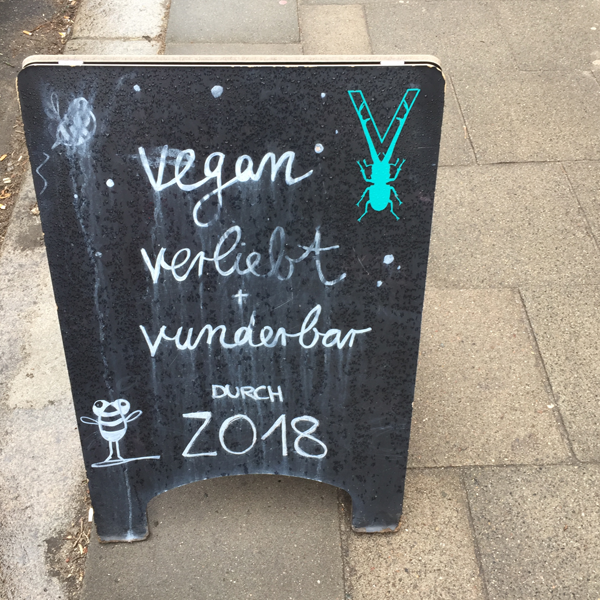 vegan
verliebt
+
vunderbar
DURCH
2018